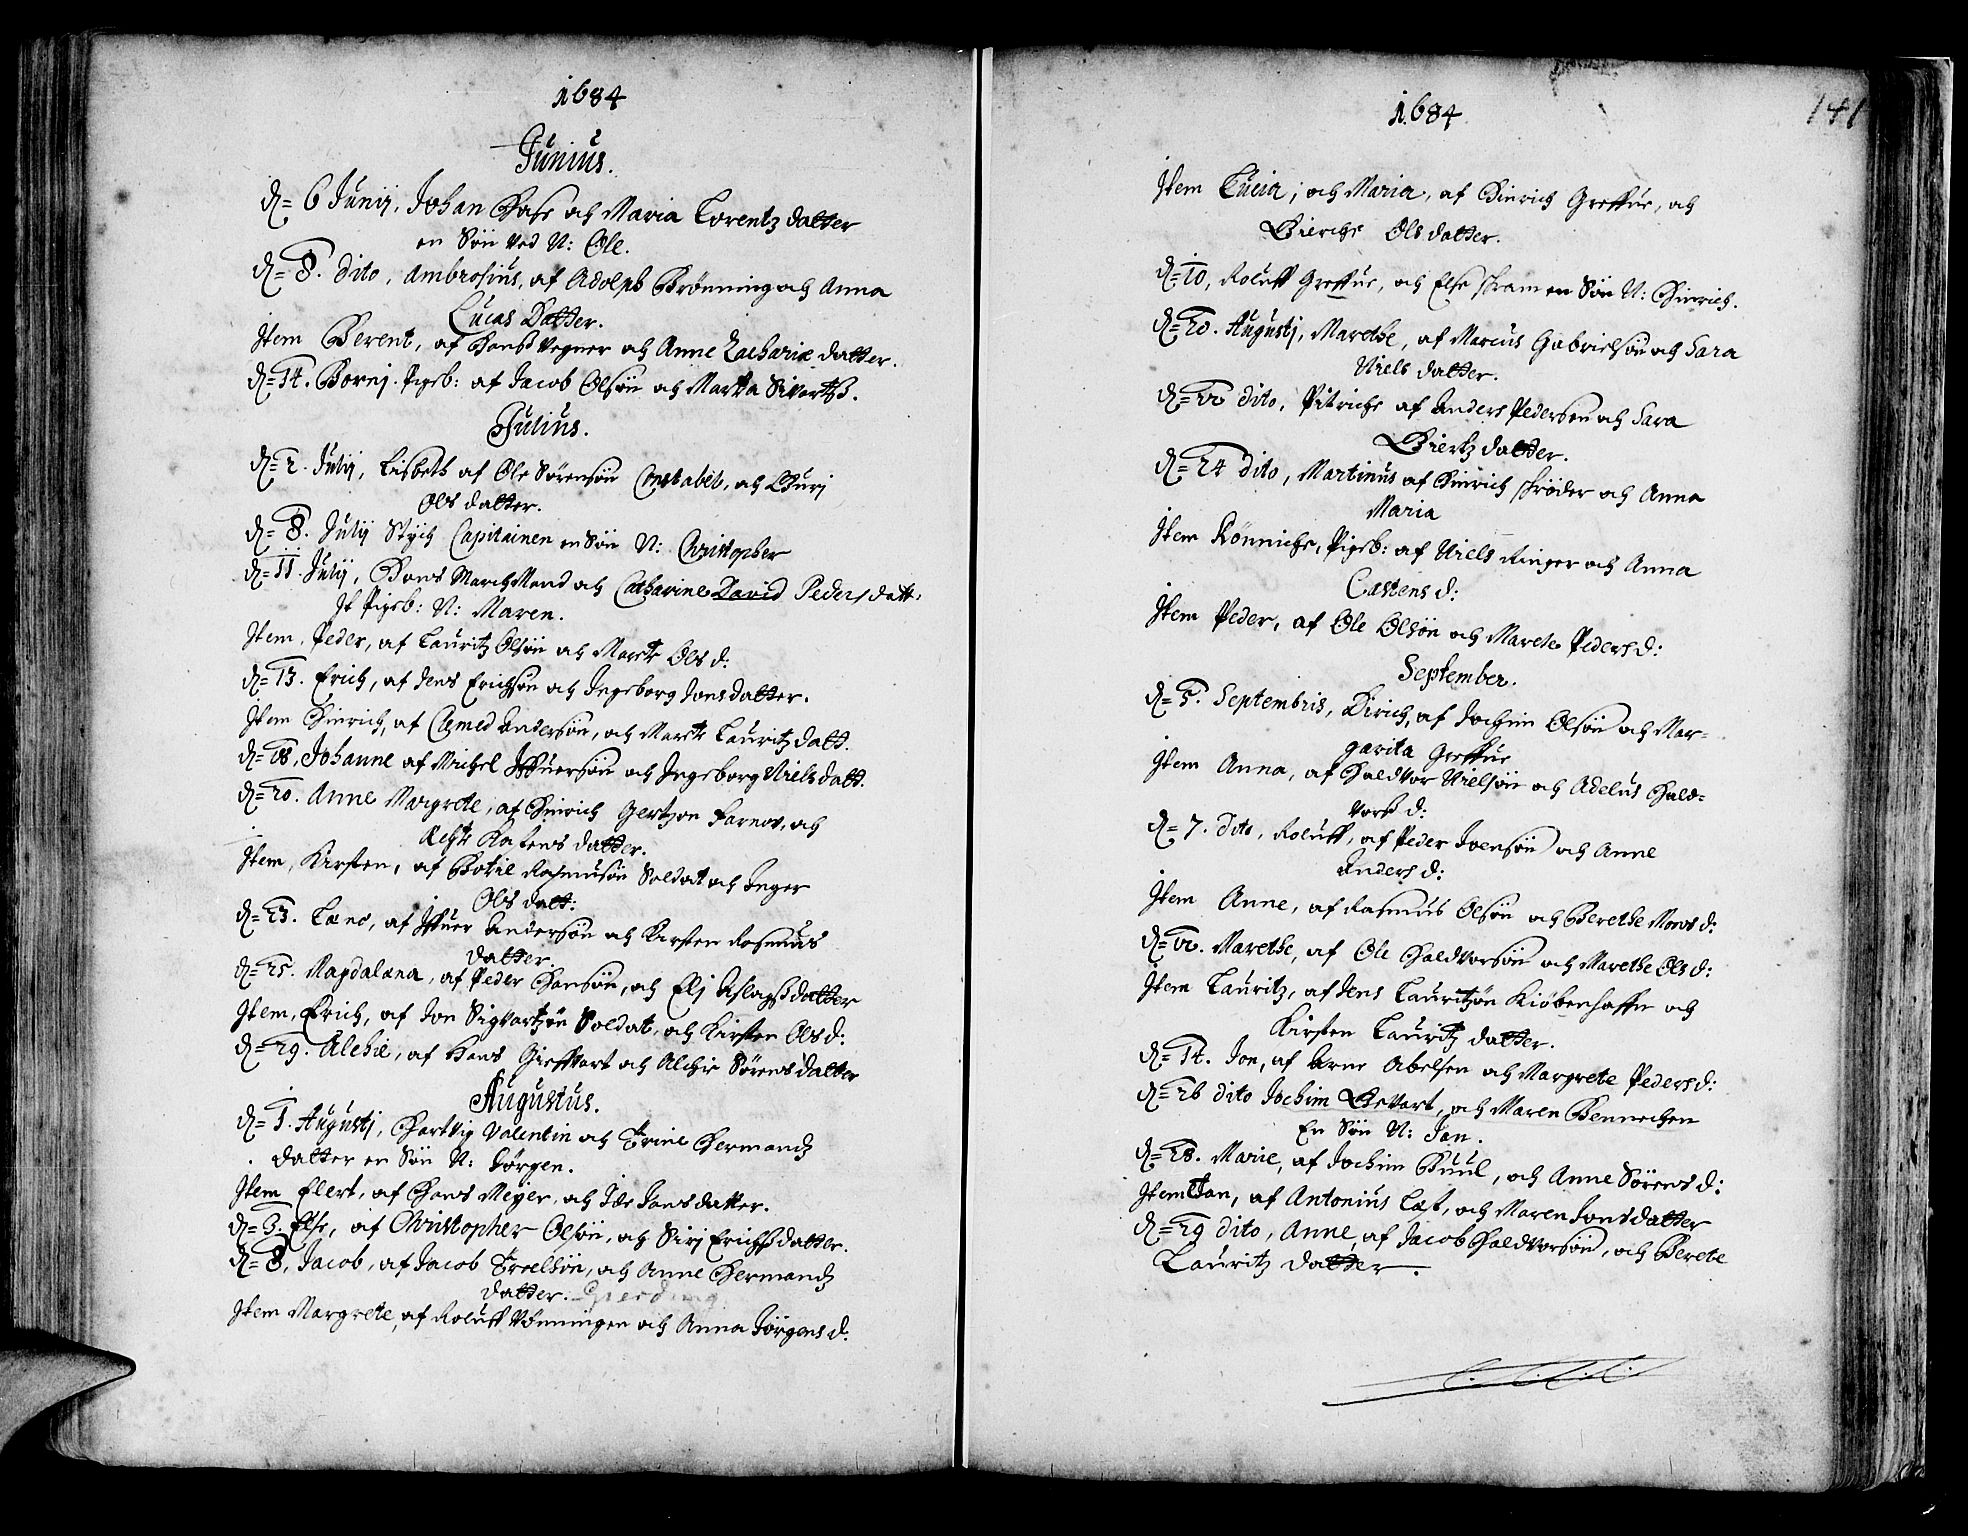 1684
Junius.
D= 6 Junij, Johan Hase och Maria Lorentz datter
en Søn ved N: Ole.
D= 8. dito, Ambrosius, af Adolph Brønning och Anna
Lucas Datter.
Item Berent, af Hans Vegner och Anne Zachariæ datter.
D= 14. Bornj. Pigeb: af Jacob Olsøn och Marta Sivertz.
Julius.
D= 2. Julij, Lisbeth af Ole Sørensøn Constabel, och Gurj
Ols datter.
D= 8. Julij Stÿch Capitainen en Søn N: Christopher
D= 11 Julij, Hans MarchMand och Catharine David Peders datt:
It Pigeb: N: Maren.
Item Peder, af Lauritz Olsøn och Marete Ols d:
D= 13. Erich, af Jens Erichsøn och Ingeborg Jonsdatter.
Item Hinrich, af Clemed Andersøn, och Marete Lauritz datt.
D= 18, Johanne af Michel Iffuersøn och Ingeborg Niels datt.
D= 20. Anne Margrete, af Hinrich Gertzon Farnov, och
Karstens datter.
Item, Kirsten, af Botil Rasmusøn Soldat och Inger
Ols datt:
D= 23. Lene, af Iffuer Andersøn och Kirsten Rasmus
datter.
D= 25. Magdalena, af Peder Hansøn, och Elj Aslagsdatter
Item, Erich, af Jon Sigvartzøn Soldat, och Kirsten Ols d:
D= 29. Alchie, af Hans Gieffvart och Alchie Sørens datter
Augustus.
D= 1. Augustj, Hartvig Valentin och Trine Hermandz
datter en Søn N: Jørgen.
Item Elert, af Hans Meyer, och Ide Jansdatter.
D= 3. Else, af Christopher Olsøn, och Sirj Erichsdatter.
D= 8, Jacob, af Jacob Troelsøn, och Anne Hermandz
datter. Gierding
Item Margrete, af Roluff Vönningen och Anna Jørgens d:
1684
141
Item Lucia, och Maria, af Hinrich Greffue, och
Gierche Ols datter.
D= 10, Roluff Greffue, och Else Skram en Søn N: Hinrich.
D= 20. Augustj, Marethe, af Marcus Gabrielsøn och Sara
Niels datter.
D= 22 dito, Pitriche af Anders Pedersen och Sara
Giertz datter.
D= 24 dito, Martinus af Hinrich Skrøder och Anna
Maria
Item Rønniche, Pigeb: af Niels Ringer och Anna
Castens d:
Item Peder, af Ole Olsøn och Marete Peders d:
September.
D= 5. Septembris, Dirich, af Jochim Olsøn och Mar-
garita Greffue
Item Anna, af Haldvor Nielsøn och Adelus Hald-
vors d:
D= 7. dito, Roluff, af Peder Joensøn och Anne
Anders d:
Item Anne, af Rasmus Olsøn och Berethe Mons d:
D= 12. Marethe, af Ole Haldvorsøn och Marethe Ols d:
Item Lauritz, af Jens Lauritzøn Kiøbenhaffn och
Kirsten Lauritz datter.
D= 14. Jon, af Arne Abelsen och Margrete Peders d:
D= 26 dito Jochim Gevart, och Maren Bennechen
En Søn N: Jan.
D= 28. Marie, af Jochim Huul, och Anne Sørens d:
Item Jan, af Antonius Last, och Maren Jonsdatter
D= 29 dito, Anne, af Jacob Haldvorsøn, och Berete
Lauritz datter.